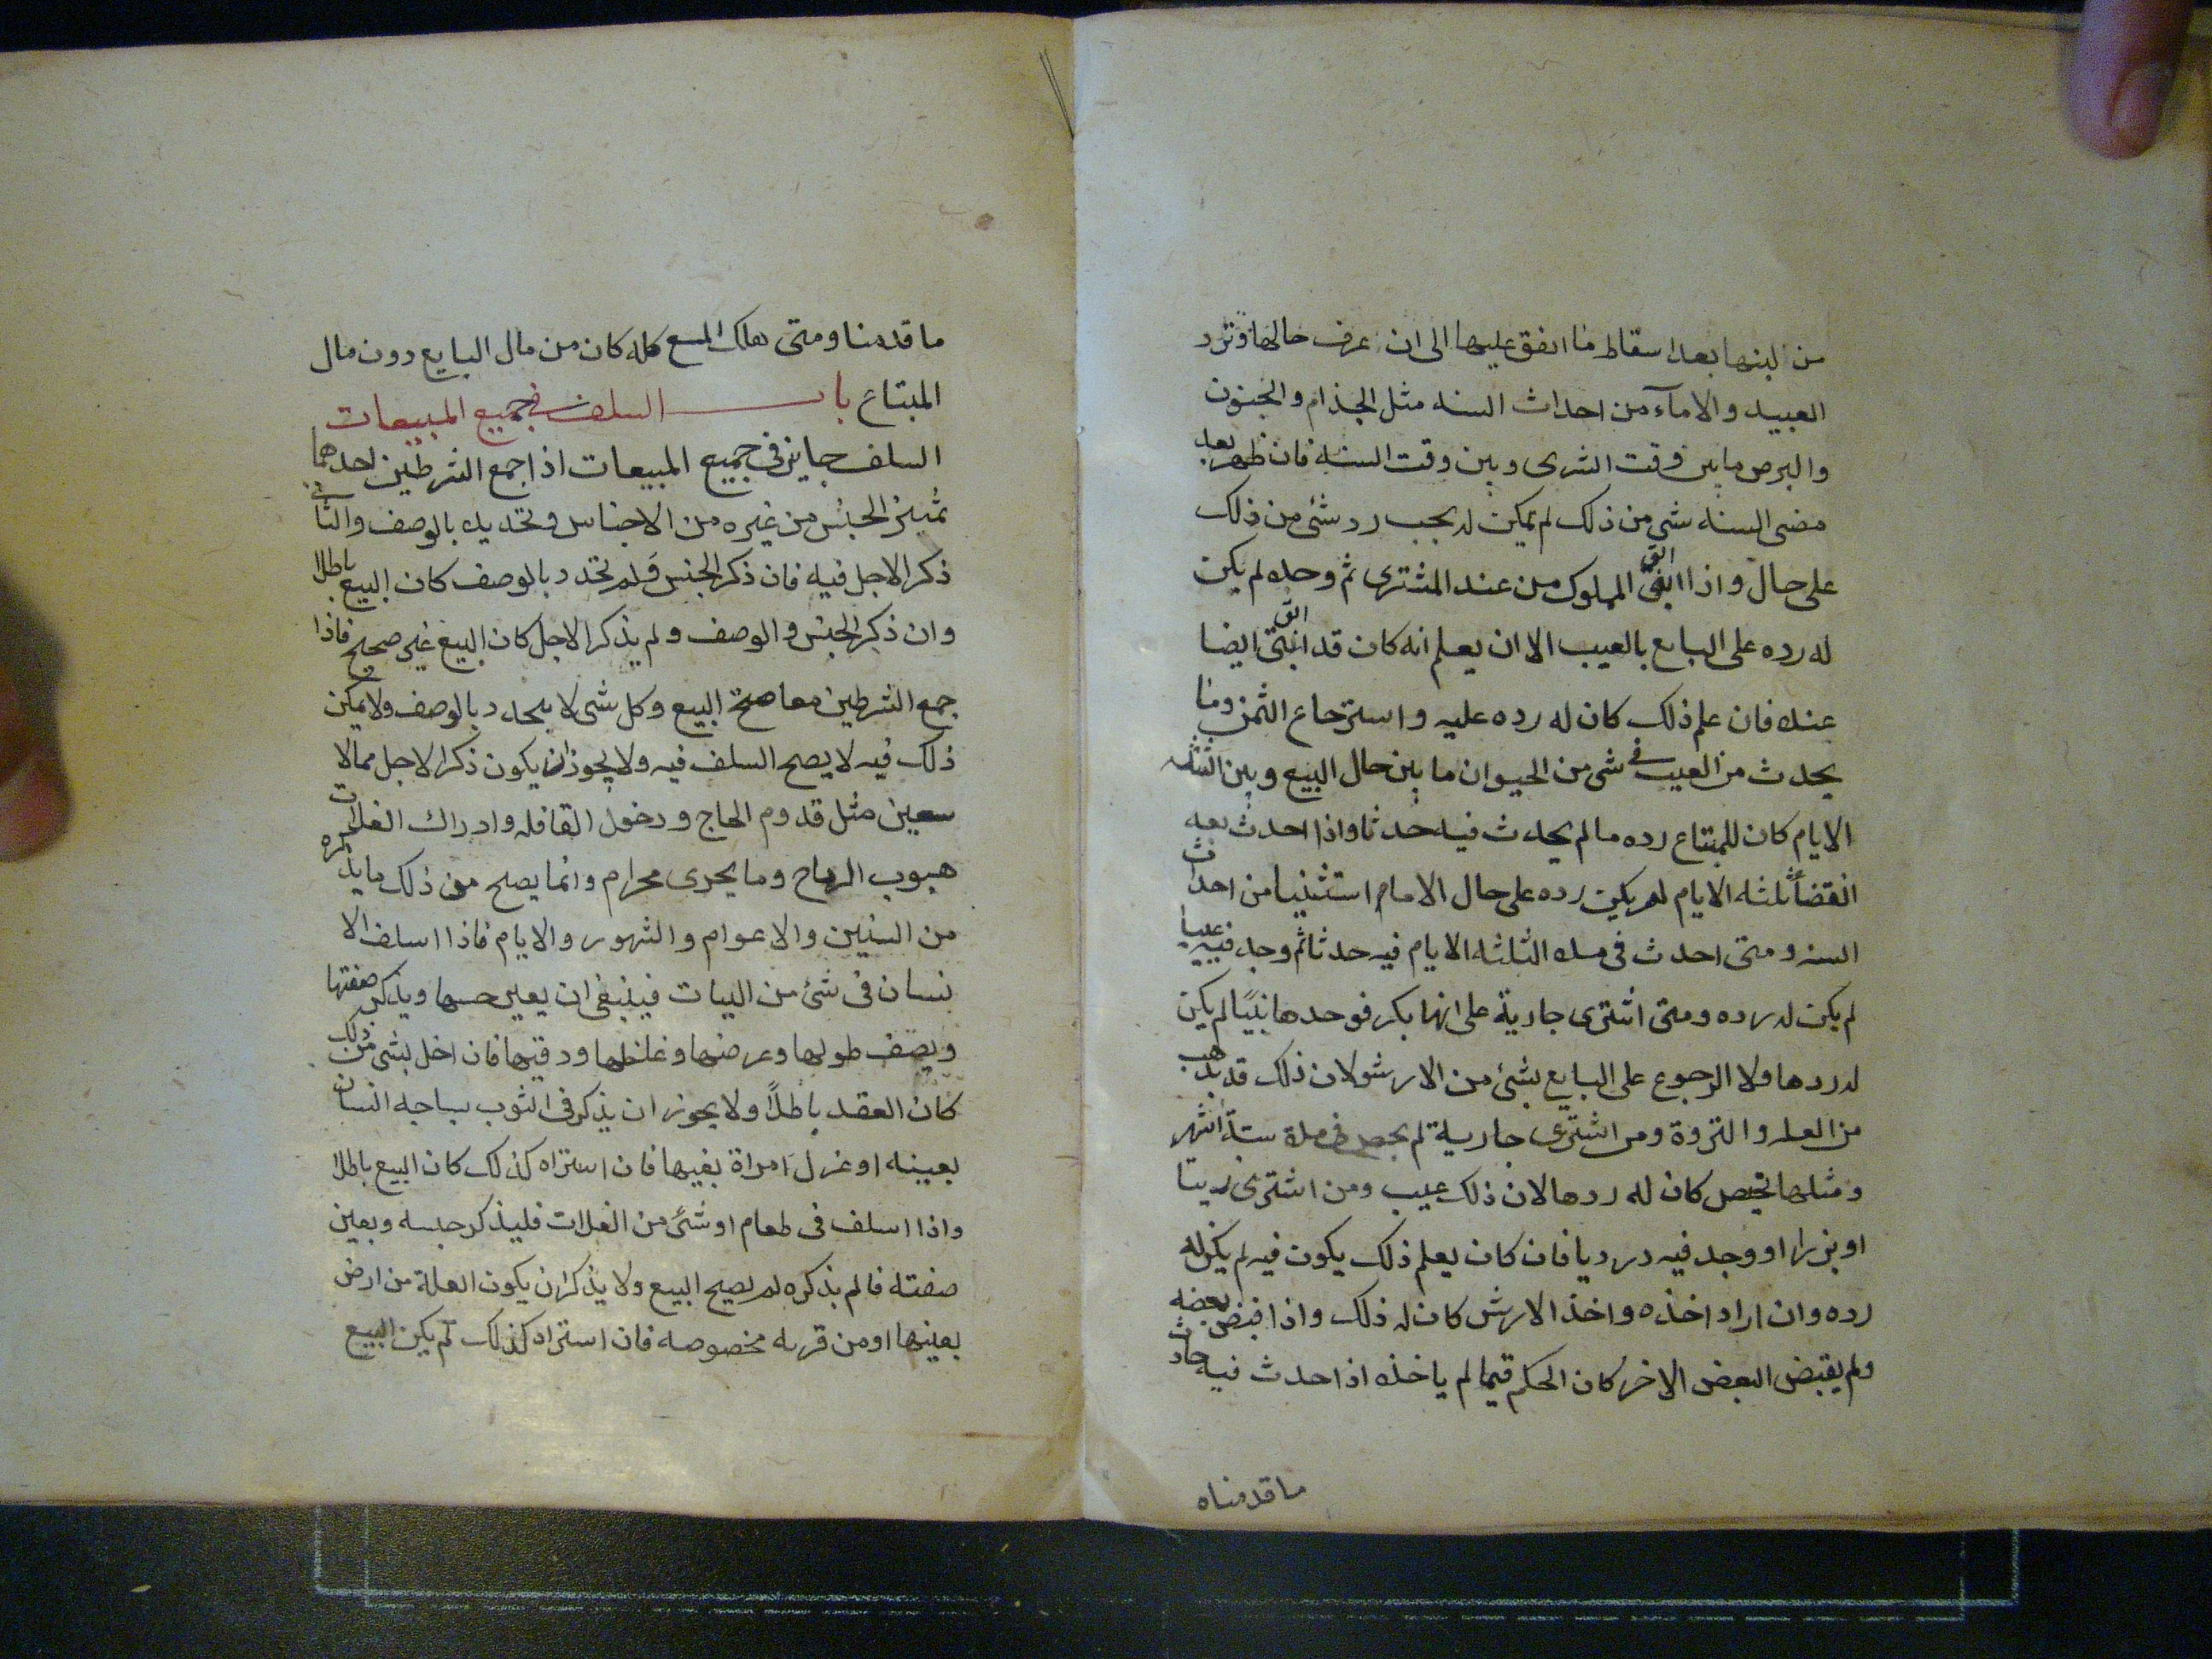 من لبنها بعد اسقاط ما انفق عليها الى ان عرف حالها وترد
العبيد والامآء من احداث السنه مثل الجذام والجنون
والبرص ما بين وقت الشرى وبين وقت السنه فان ظهر بعد
مضى السنه شى من ذلك لم يمكن له يجب رد شئ من ذلك
على حال واذا ابق المملوك من عند المشترى ثم وجده لم يكن
له رده على البايع بالعيب الا ان يعلم انه كان قد ابق ايضا
عنده فان علم ذلك كان له رده عليه واسترجاع الثمن وما
يحدث من العيب فى شى من الحيوان ما بين حال البيع وبين الثلثه
الايام كان للمبتاع رده ما لم يحدث فيه حدثا واذا احدث بعد
انقضآ ثلثه الايام لم يكن رده على حال الا ما استثنينا من احداث
السنه ومتى احدث فى مده الثلثه الايام فيه حدثا ثم وجد فيه عيبا
لم يكن له رده ومتى اشترى جارية على انها بكر فوجدها ثيبا لم يكن
له ردها ولا الرجوع على البايع بشئ من الارش ولان ذلك قد يذهب
من العله والنزوة ومن اشترى جارية لم يحض فى مدة ستة اشهر
ومثلها تحيض كان له ردها لان ذلك عيب ومن اشترى زيتا
او بزرا او وجد فيه درديا فان كان يعلم ذلك يكون فيه لم يكن له
رده وان اراد اخذه واخذ الارش كان له ذلك واذا قبض بعضه
ولم يقبض البعض الاخر كان الحكم فيما لم ياخذه اذا حدث فيه حادث
ما قدمناه
ما قدمنا ومتى هلك المبيع كله كان من مال البايع دون مال
المبتاع باب السلف فى جميع المبيعات
السلف جايز فى جميع المبيعات اذا جمع الشرطين احدهما
تميز الجنس من غيره من الاجناس وتحديده بالوصف والثانى
ذكر الاجل فيه فان ذكر الجنس ولم تحدد بالوصف كان البيع باطلا
وان ذكر الجنس والوصف ولم يذكر الاجل كان البيع غير صحيح فاذا
جمع الشرطين معا صح البيع وكل شى لا يتحدد بالوصف ولا يمكن
ذلك فيه لا يصح السلف فيه ولا يجوز ان يكون ذكر الاجل مما لا
معين مثل قدوم الحاج ودخول القافله وادراك الغلات
هبوب الرياح وما يجرى محرام وانما يصح من ذلك ما يذكره
من السنين والاعوام والشهور والايام فاذا اسلف الا
نسان فى شئ من البيات فينبغى ان يعين جنسها ويذكر صفتها
ويصف طولها وعرضها وغلظها ودقيها فان اخل بشى من ذلك
كان العقد باطلاً ولا يجوز ان يذكر فى الثوب بساجه انسان
بعينه او غزل امراة بعينها فان اشتراه كذلك كان البيع باطلا
واذا اسلف فى طعام او شئ من الغلات فليذكر جنسه ويعين
صفته فالم يذكره لم يصح البيع ولا يذكر ان يكون الغلة من ارض
بعينها او من قريه مخصوصه فان اشتراه كذلك لم يكن البيع